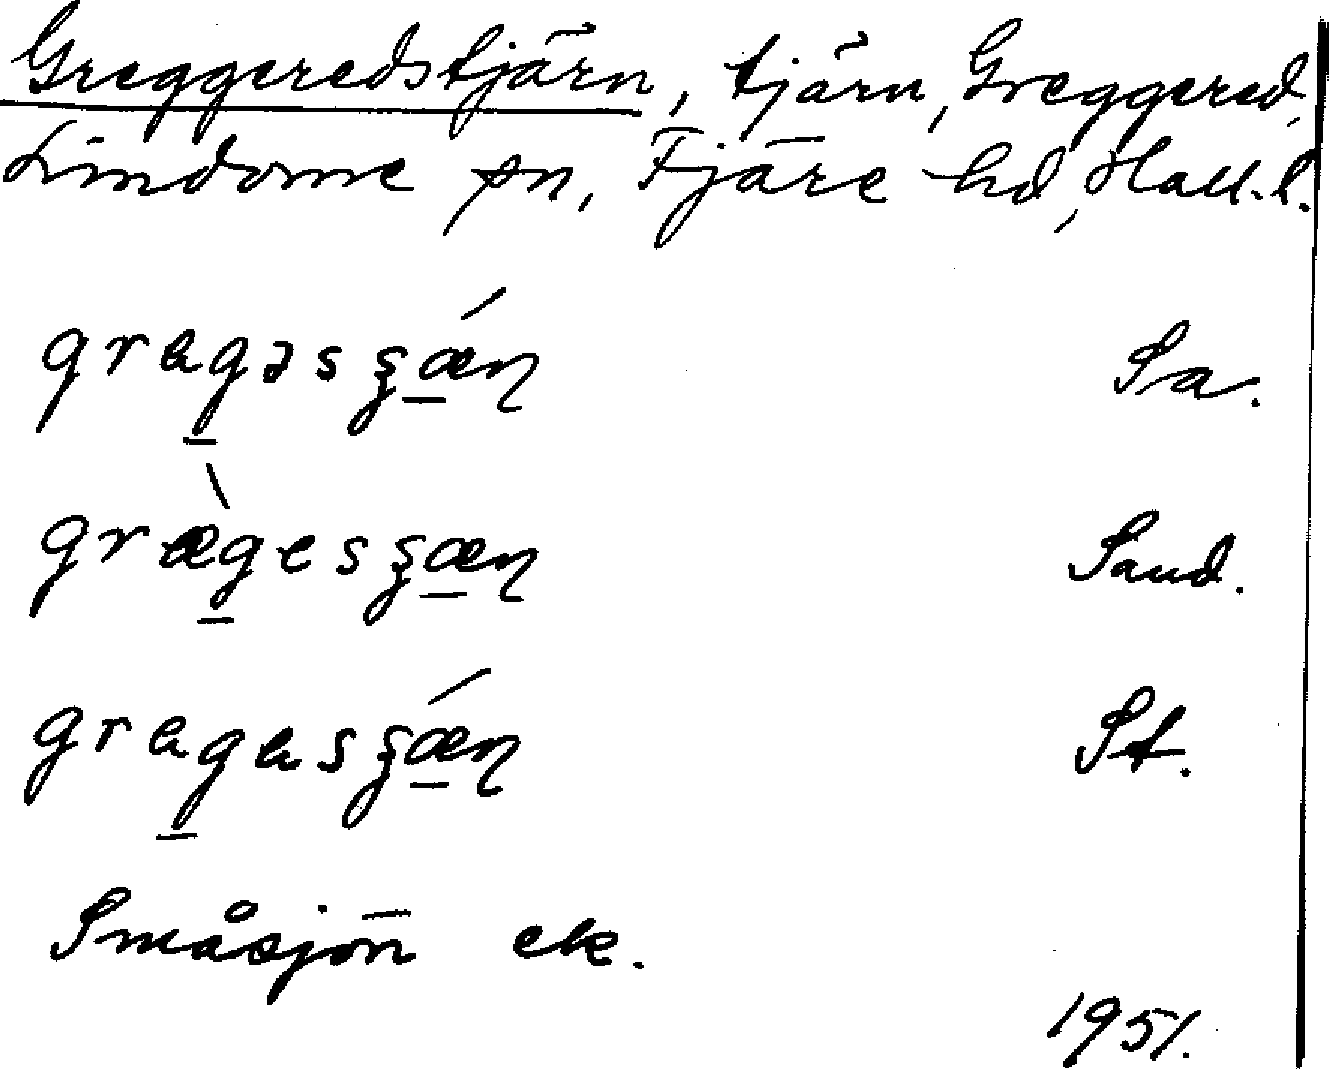 Greggeredstjärn, tjärn, Greggered,
Lindome sn, Fjäre hd, Hall. l.
gragəsʂǽɳ Sa.
grægesʂæɳ Sand.
gragasʂǽɳ St.
Småsjön ek.
1951.